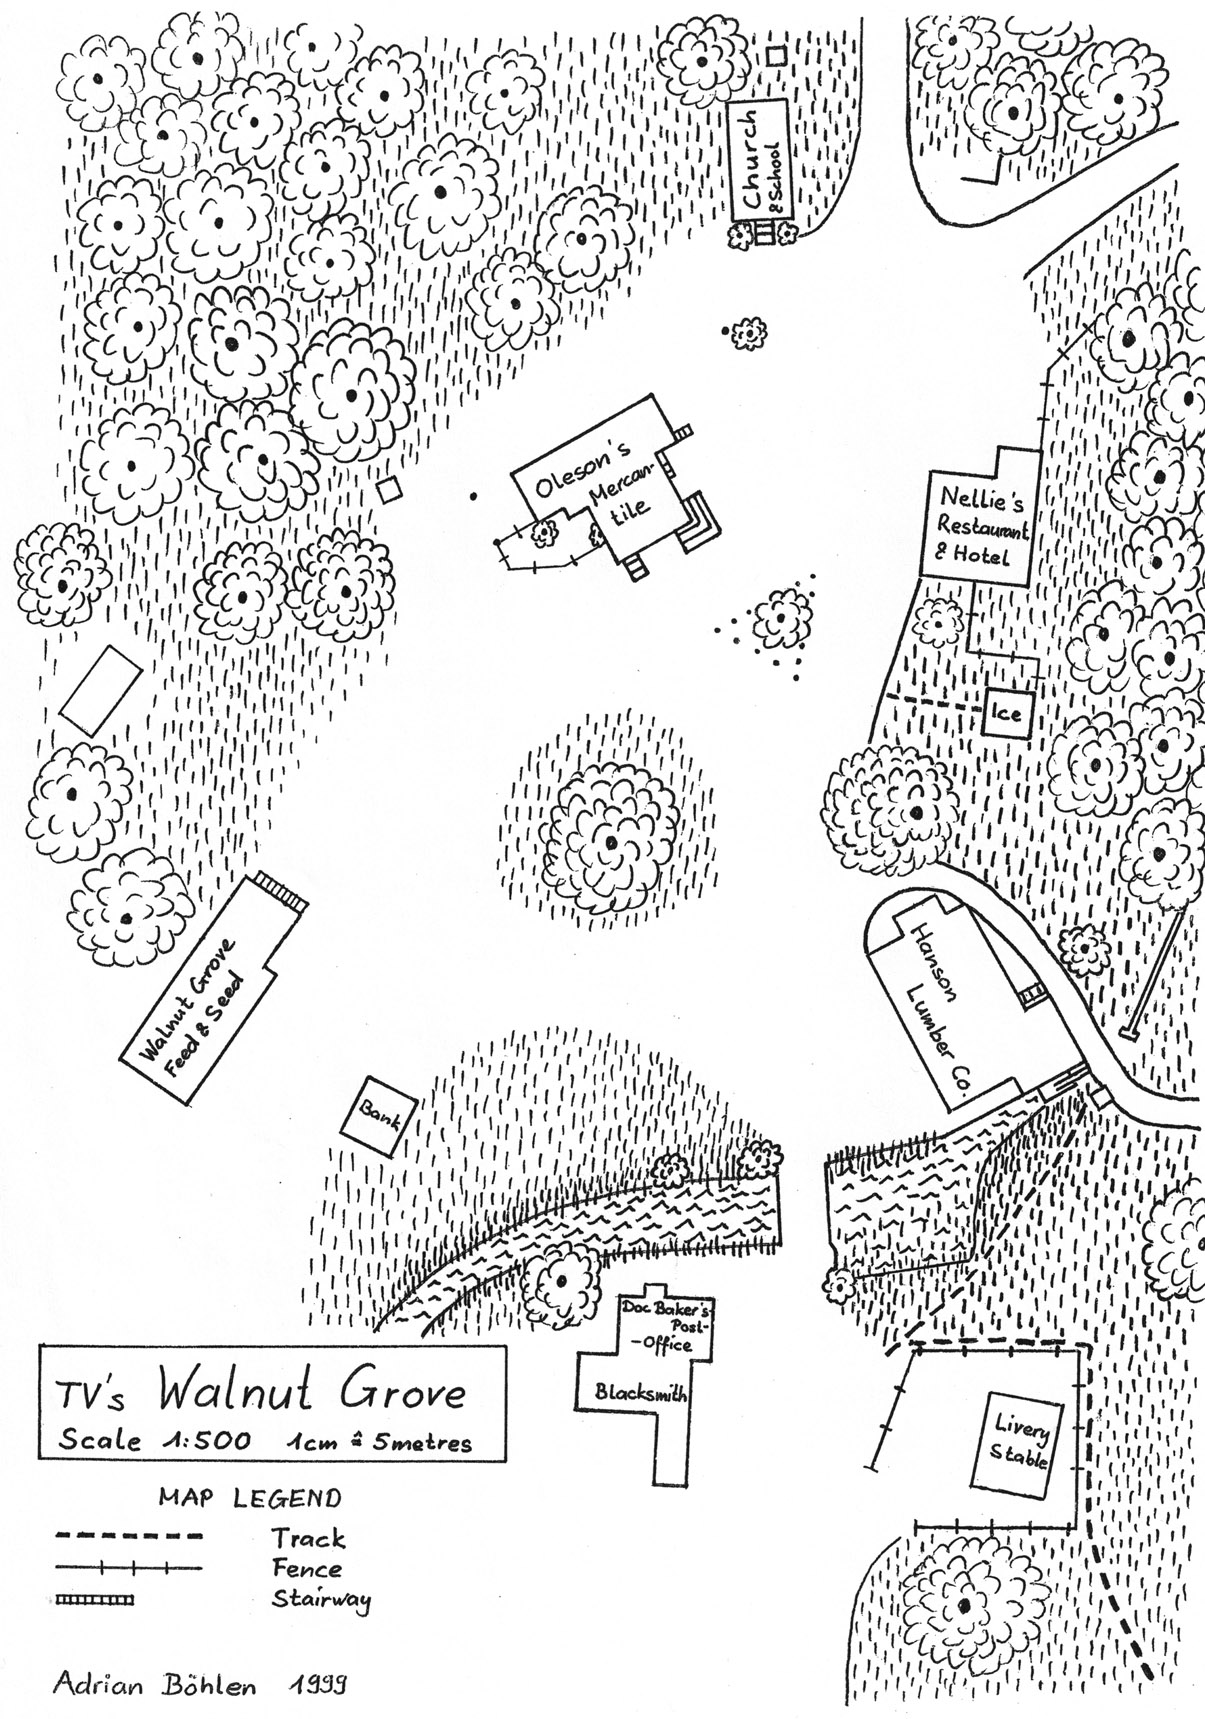 Church
& School
Oleson's
Mercan-
tile
Nellie's
Restaurant
& Hotel
Ice
Walnut Grove
Feed & Seed
Hanson
Lumber Co.
Bank
Doc Baker's
Post-
-Office
Blacksmith
Livery
Stable
TV's Walnut Grove
Scale 1:500 1cm ≙ 5metres
MAP LEGEND
Track
Fence
Stairway
Adrian Böhlen 1999